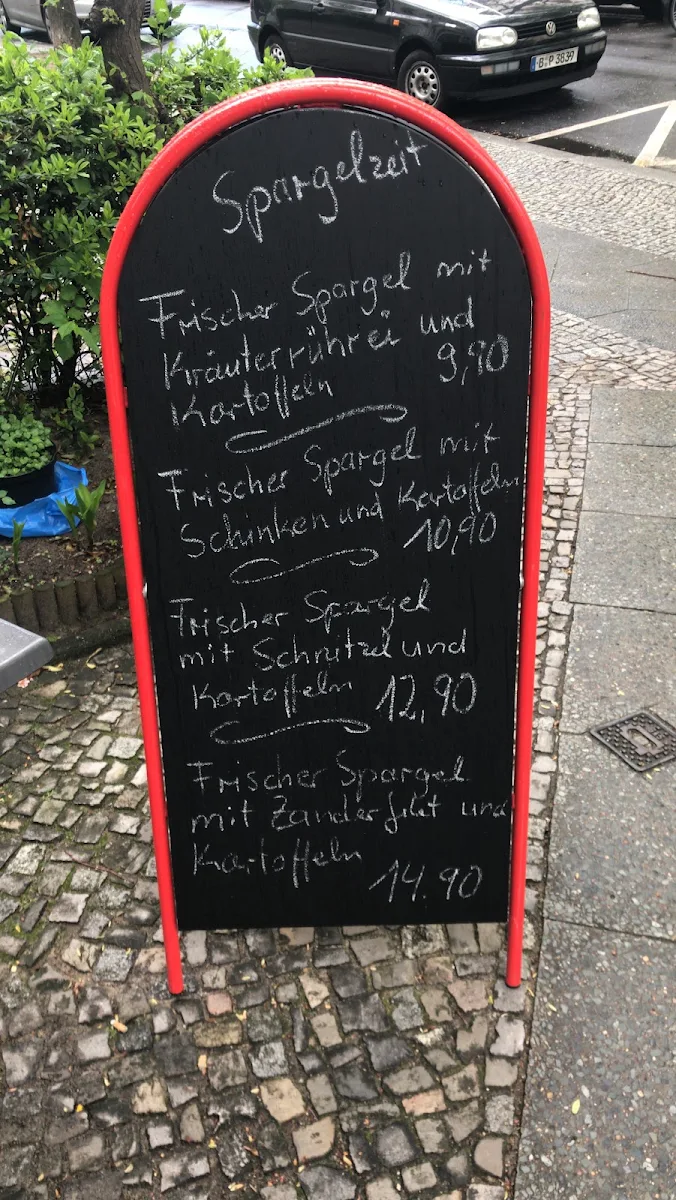 B P 3839
Spargelzeit
Frischer Spargel mit
Kräuterrührei und
Kartoffeln 9,90
Frischer Spargel mit
Schinken und Kartoffeln
10,90
Frischer Spargel
mit Schnitzel und
Kartoffeln 12,90
Frischer Spargel
mit Zanderfilet und
Kartoffeln
14.90